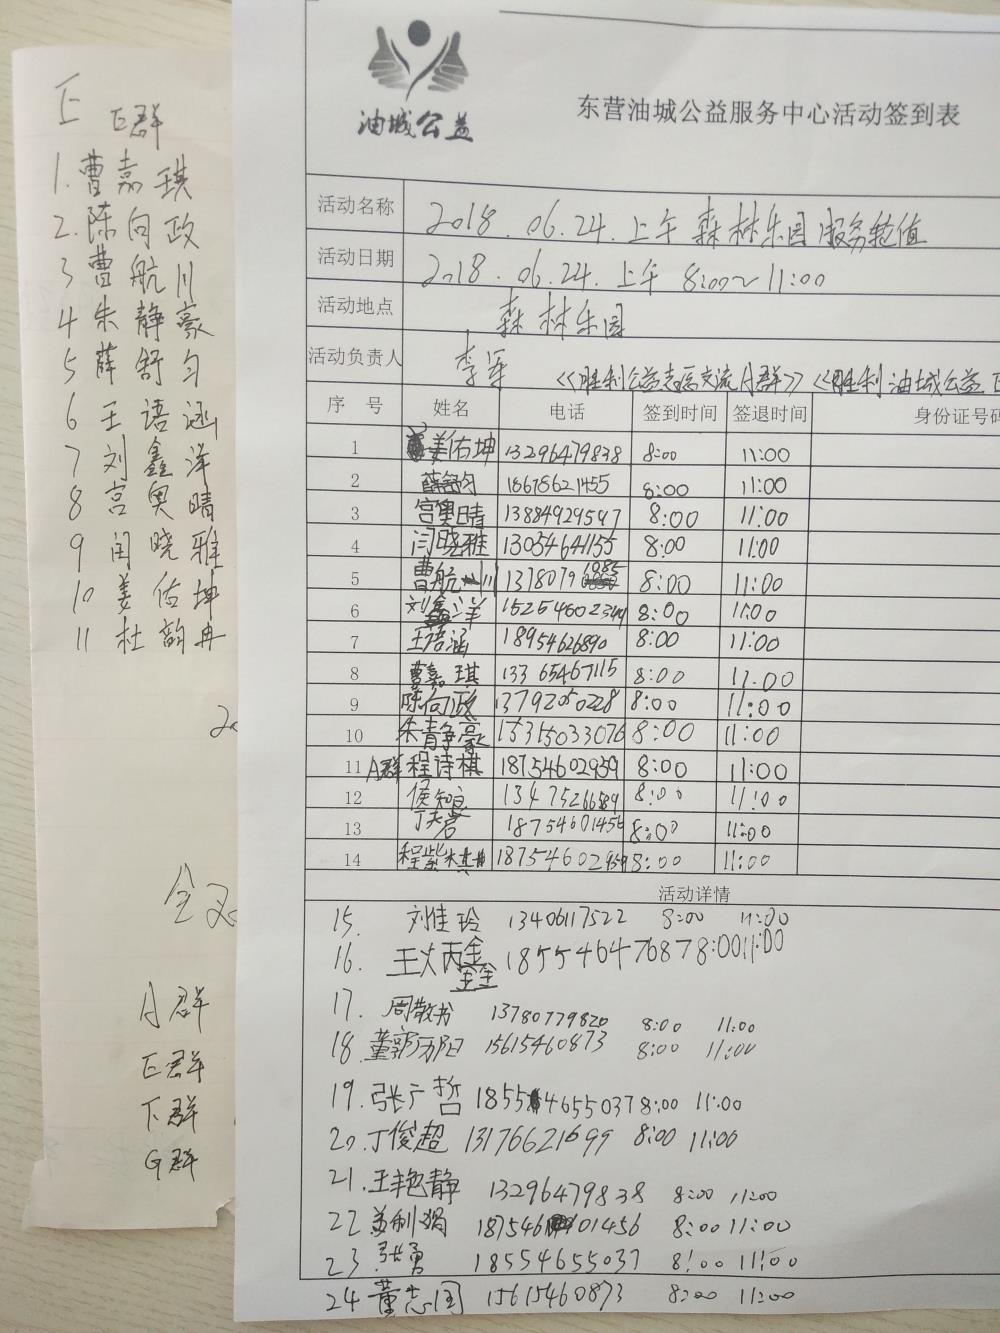 E群
1. 曹嘉琪
2. 陈向政
3 曹航川
4 朱静豪
5 薛舒匀
6 王语涵
7 刘鑫洋
8 宫奥晴
9 闫晓雅
10 姜佑坤
11 杜韵冉
A群
E群
下群
G群
油城公益
东营油城公益服务中心活动签到表
活动名称 2018.06.24.上午 森林乐园 服务执值
活动日期 2018.06.24.上午 8:00~11:00
活动地点 森林乐园
活动负责人 李军 《胜利公益志愿交流A群》《胜利油城公益E
序 号 姓名 电话 签到时间 签退时间 身份证号码
1 姜佑坤 13296479838 8:00 11:00
2 薛舒匀 18678621455 8:00 11:00
3 宫奥晴 13884929597 8:00 11:00
4 闫晓雅 13054641155 8:00 11:00
5 曹航川 1378079 1085 8:00 11:00
6 刘鑫洋 8:00 11:00
7 王语涵 18954626890 8:00 11:00
8 曹嘉琪 13365467115 8:00 11:00
9 陈向政 13792050228 8:00 11:00
10 朱静豪 15315033076 8:00 11:00
11 A群 程诗棋 18754602959 8:00 11:00
12 侯知良 8:00 11:00
13 丁天营 18754601456 8:00 11:00
14 程紫棋 18754602959 8:00 11:00
活动详情
15. 刘佳玲 13406117522 8:00 11:00
16. 王火丙金鑫 18554647687 8:00 11:00
17. 周散书 13780779820 8:00 11:00
18. 董郭历阳 15615460873 8:00 11:00
19. 张广哲 18554655037 8:00 11:00
20. 丁俊超 13176621699 8:00 11:00
21. 王艳静 13296479838 8:00 11:00
22 姜利娟 18754601456 8:00 11:00
23. 张勇 18554655037 8:00 11:00
24 董志国 15615460873 8:00 11:00